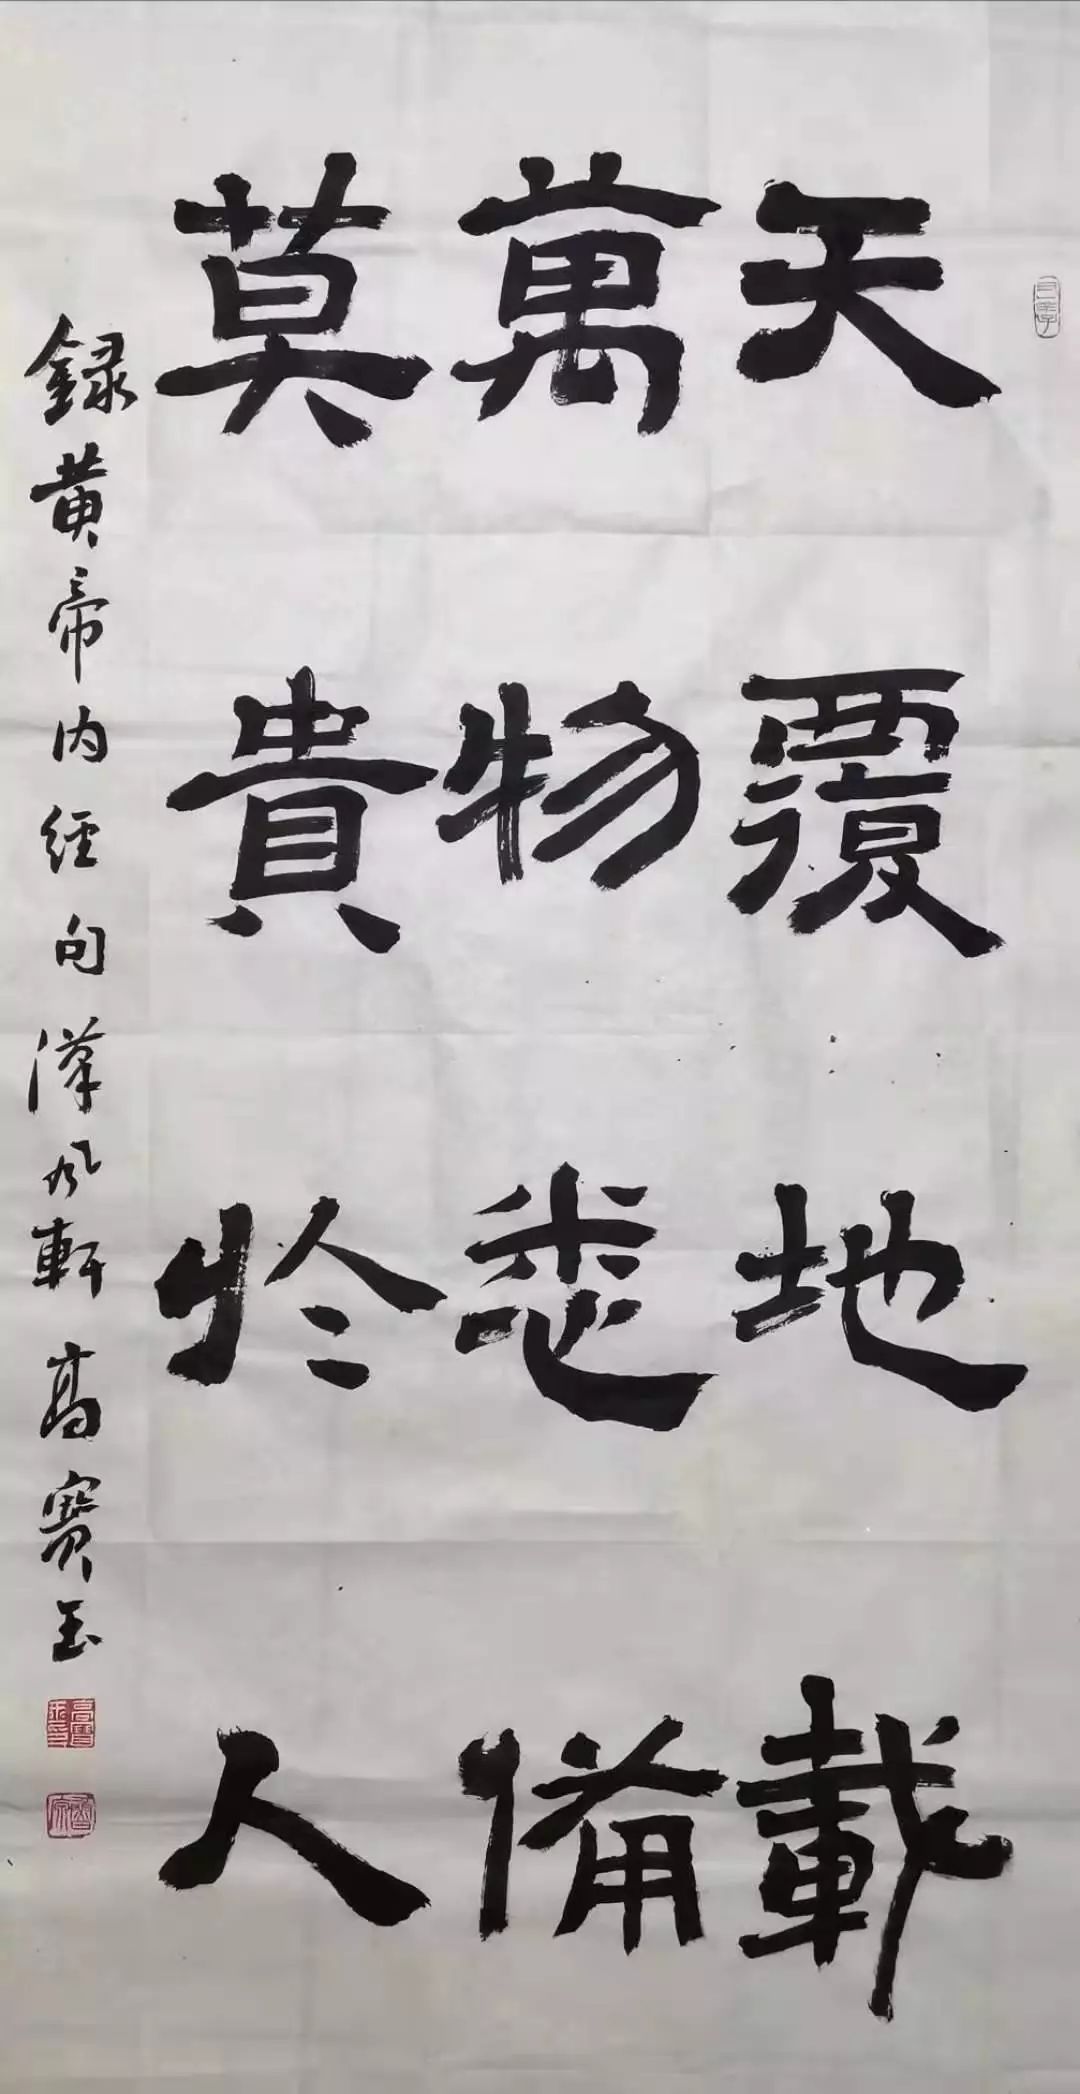 天覆地載
萬物悉備
莫貴於人
録黄帝内經句漢風軒高寶玉